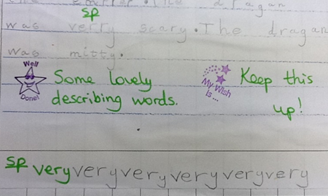 sp
was verry scary. The dragan
was
Well Done!
Some lovely
describing words.
My Wish
is...
Keep this
up!
sp very very very very very very